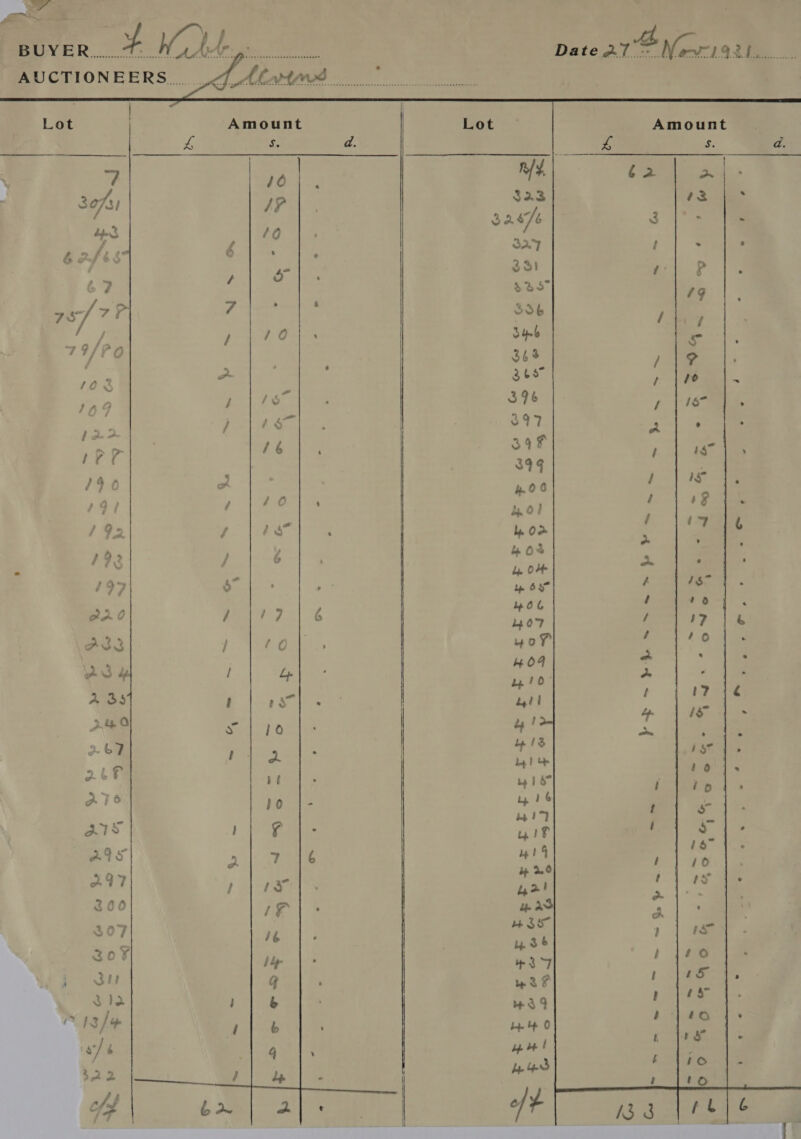 BUYER F Wall Date 27th Nov 1921
AUCTIONEERS
Lot Amount Lot Amount
£ s. d. £ s. d.
7 10 -
30/31 18 -
43 10 -
62/65 6 - -
67 1 5 -
75/78 7 - -
79/80 1 10 -
103 2 - -
109 1 15 -
122 1 15 -
188 16 -
190 2 - -
191 1 10 -
192 1 15 -
193 1 6 -
197 5 - -
220 1 17 6
233 1 10 -
234 1 4 -
235 1 15 -
240 5 10 -
267 1 2 -
268 11 -
270 10 -
275 1 8 -
295 2 7 6
297 1 15 -
300 18 -
307 16 -
308 14 -
311 9 -
312 1 6 -
313/4 1 6 -
315/6 9 -
322 1 4 -
c/f 62 2 -
B/f 62 2 -
323 13 -
325/6 3 - -
327 1 - -
331 1 8 -
335 19 -
336 1 1 -
346 5 -
363 1 8 -
365 1 10 -
396 1 15 -
397 2 - -
398 1 15 -
399 1 15 -
400 1 18 -
401 1 17 6
402 2 - -
403 2 - -
404 1 15 -
405 1 10 -
406 1 17 6
407 1 10 -
408 2 - -
409 2 - -
410 1 17 6
411 4 15 -
412 2 - -
413 15 -
414 10 -
415 1 10 -
416 1 5 -
417 1 5 -
418 15 -
419 1 10 -
420 1 15 -
421 2 - -
423 2 - -
435 1 15 -
436 1 10 -
437 1 15 -
438 1 15 -
439 1 10 -
440 1 15 -
441 1 10 -
443 1 10 -
c/f 133 16 6